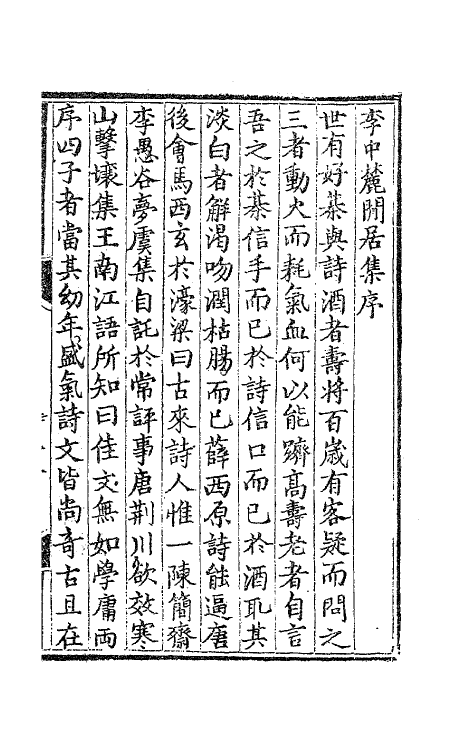 李中麓閒居集序
世有好棊與詩酒者壽將百歲有客疑而問之
三者動火而耗氣血何以能躋高壽老者自言
吾之於棊信手而已於詩信口而已於酒取其
淡白者解渴吻潤枯腸而已薛西原詩能逼唐
後會馬西玄於濠梁曰古來詩人惟一陳簡齋
李愚谷夢虞集自託於常評事唐荆川欲效寒
山擊壤集王南江語所知曰佳文無如學庸兩
序四子者當其幼年盛氣詩文皆尚奇古且在